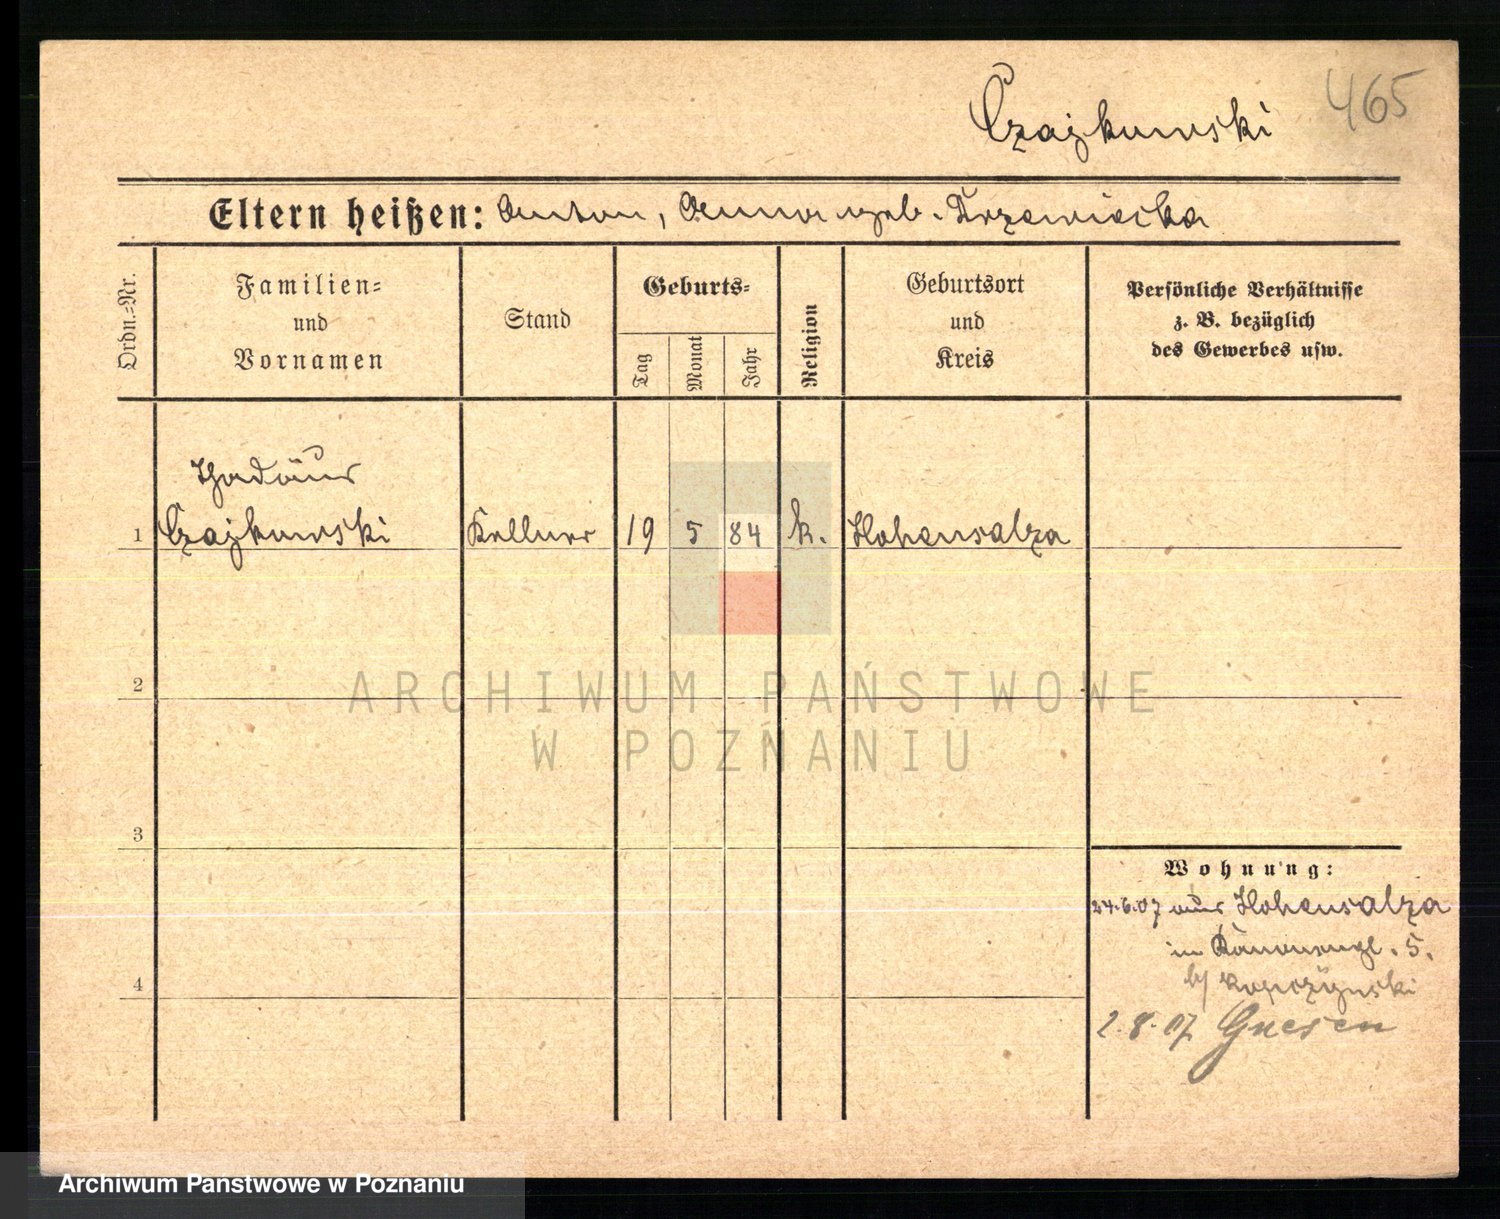 465
Czajkowski
Eltern heißen: Anton, Anna geb. Krzewiacka
Ordn.-Nr.
Familien-
und
Vornamen
Stand
Geburts-
Tag
Monat
Jahr
Religion
Geburtsort
und
Kreis
Persönliche Verhältnisse
z. B. bezüglich
des Gewerbes usw.
Thadäus
1 Czajkowski Kellner 19 5 84 k. Hohensalza
2
ARCHIWUM PAŃSTWOWE
W POZNANIU
3
Wohnung:
24.6.07 aus Hohensalza
in 5.
4
b/
2.8.07 Gnesen
Archiwum Panstwowe w Poznaniu